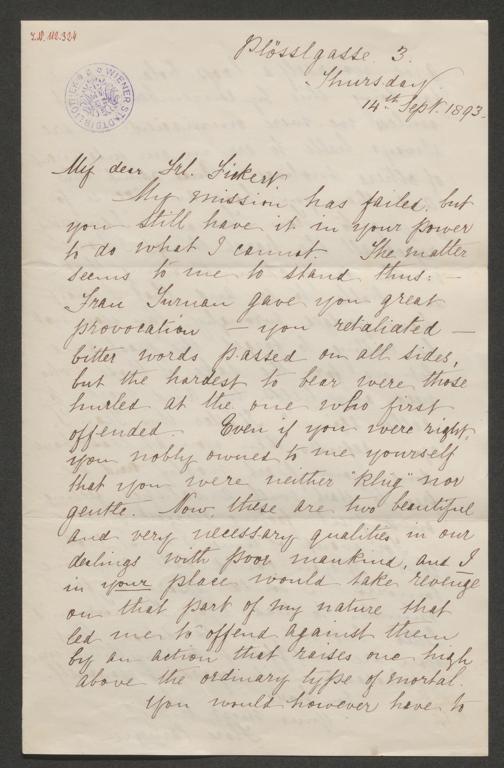 I.N. 112.324
WIENER STADTBIBLIOTHEK
Plösslgasse 3.
Thursday
14th Sept. 1893.
My dear Frl. Fickert,
My mission has failed, but
you still have it in your power
to do what I cannot. The matter
seems to me to stand thus: –
Frau Turnau gave you great
provocation – you retaliated –
bitter words passed on all sides,
but the hardest to bear were those
hurled at the one who first
offended. Even if you were right,
you nobly owned to me yourself
that you were neither "klüg" nor
gentle. Now these are two beautiful
and very necessary qualities in our
dealings with poor mankind, and I
in your place would take revenge
on that part of my nature that
led me to offend against them
by an action that raises one high
above the ordinary type of mortal.
You would however have to